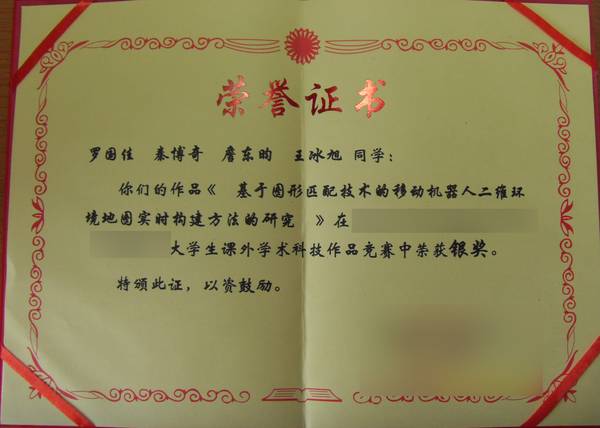 荣誉证书
罗国佳 秦博奇 詹东昀 王冰旭 同学：
你们的作品《 基于图形匹配技术的移动机器人二维环
境地图实时构建方法的研究 》在
大学生课外学术科技作品竞赛中荣获银奖。
特颁此证，以资鼓励。